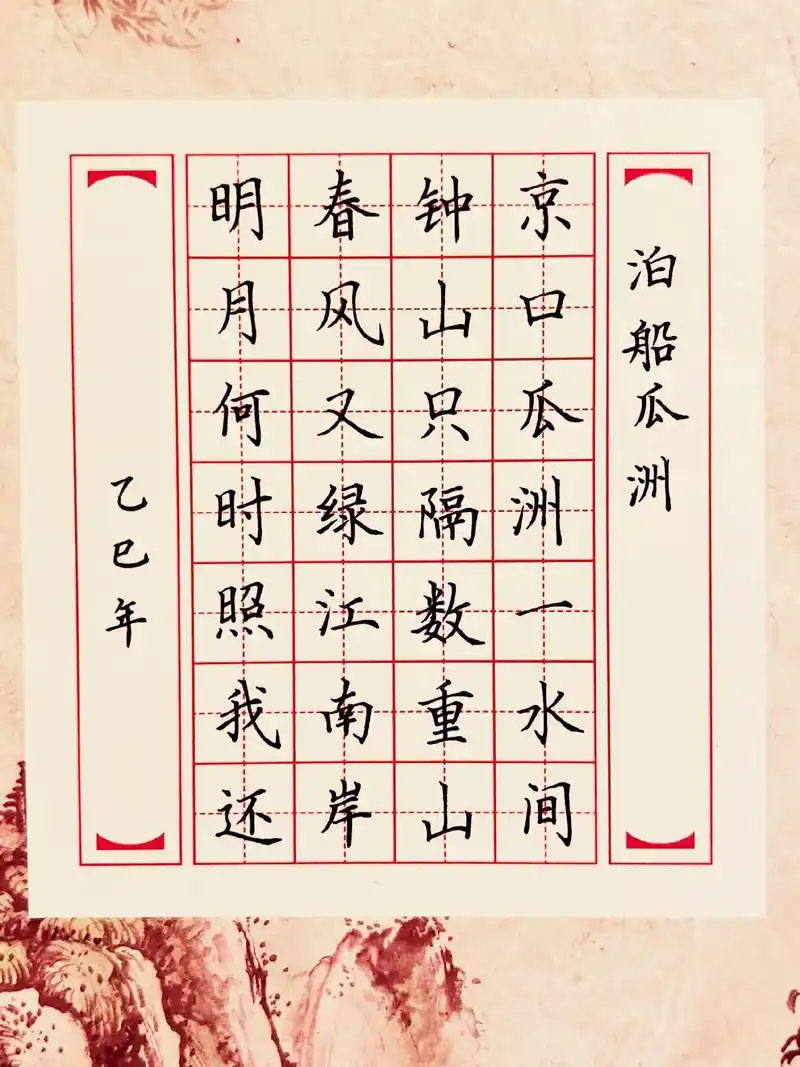 泊船瓜洲
京口瓜洲一水间
钟山只隔数重山
春风又绿江南岸
明月何时照我还
乙巳年